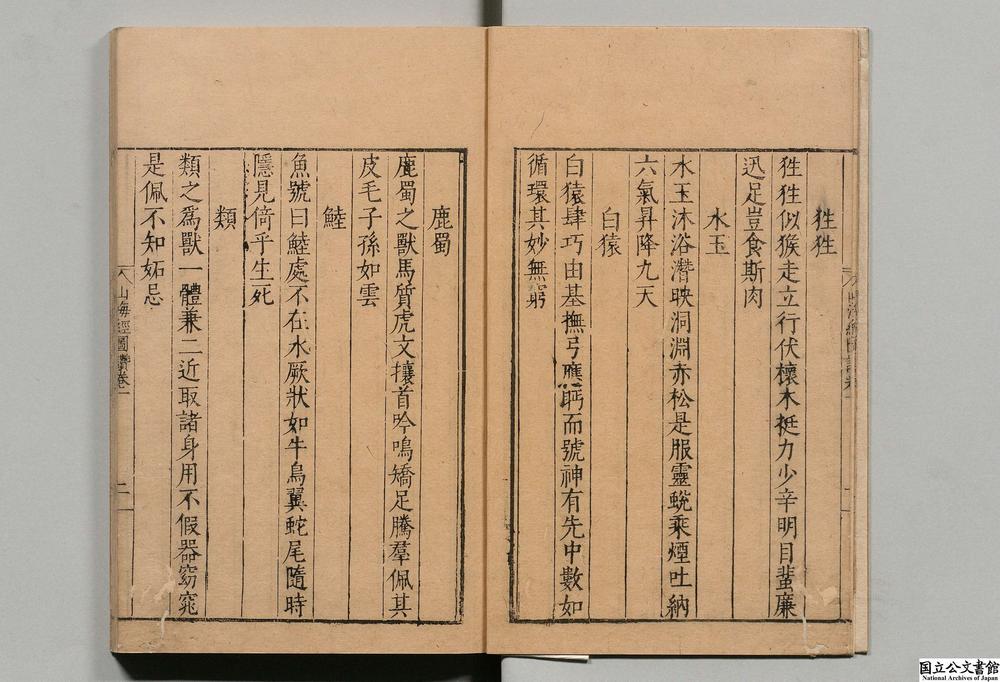 狌狌
狌狌似猴走立行伏櫰木挺力少辛明目蜚廉
迅足豈食斯肉
水玉
水玉沐浴潛映洞淵赤松是服靈蛻乘煙吐納
六氣昇降九天
白猿
白猿肆巧由基撫弓應眄而號神有先中數如
循環其妙無窮
鹿蜀
鹿蜀之獸馬質虎文攘首吟鳴矯足騰羣佩其
皮毛子孫如雲
鯥
魚號曰鯥處不在水厥狀如牛鳥翼蛇尾隨時
隱見倚乎生死
類
類之爲獸一體兼二近取諸身用不假器窈窕
是佩不知妬忌
山海經圖讚卷一
二
國立公文書館
National Archives of Japan